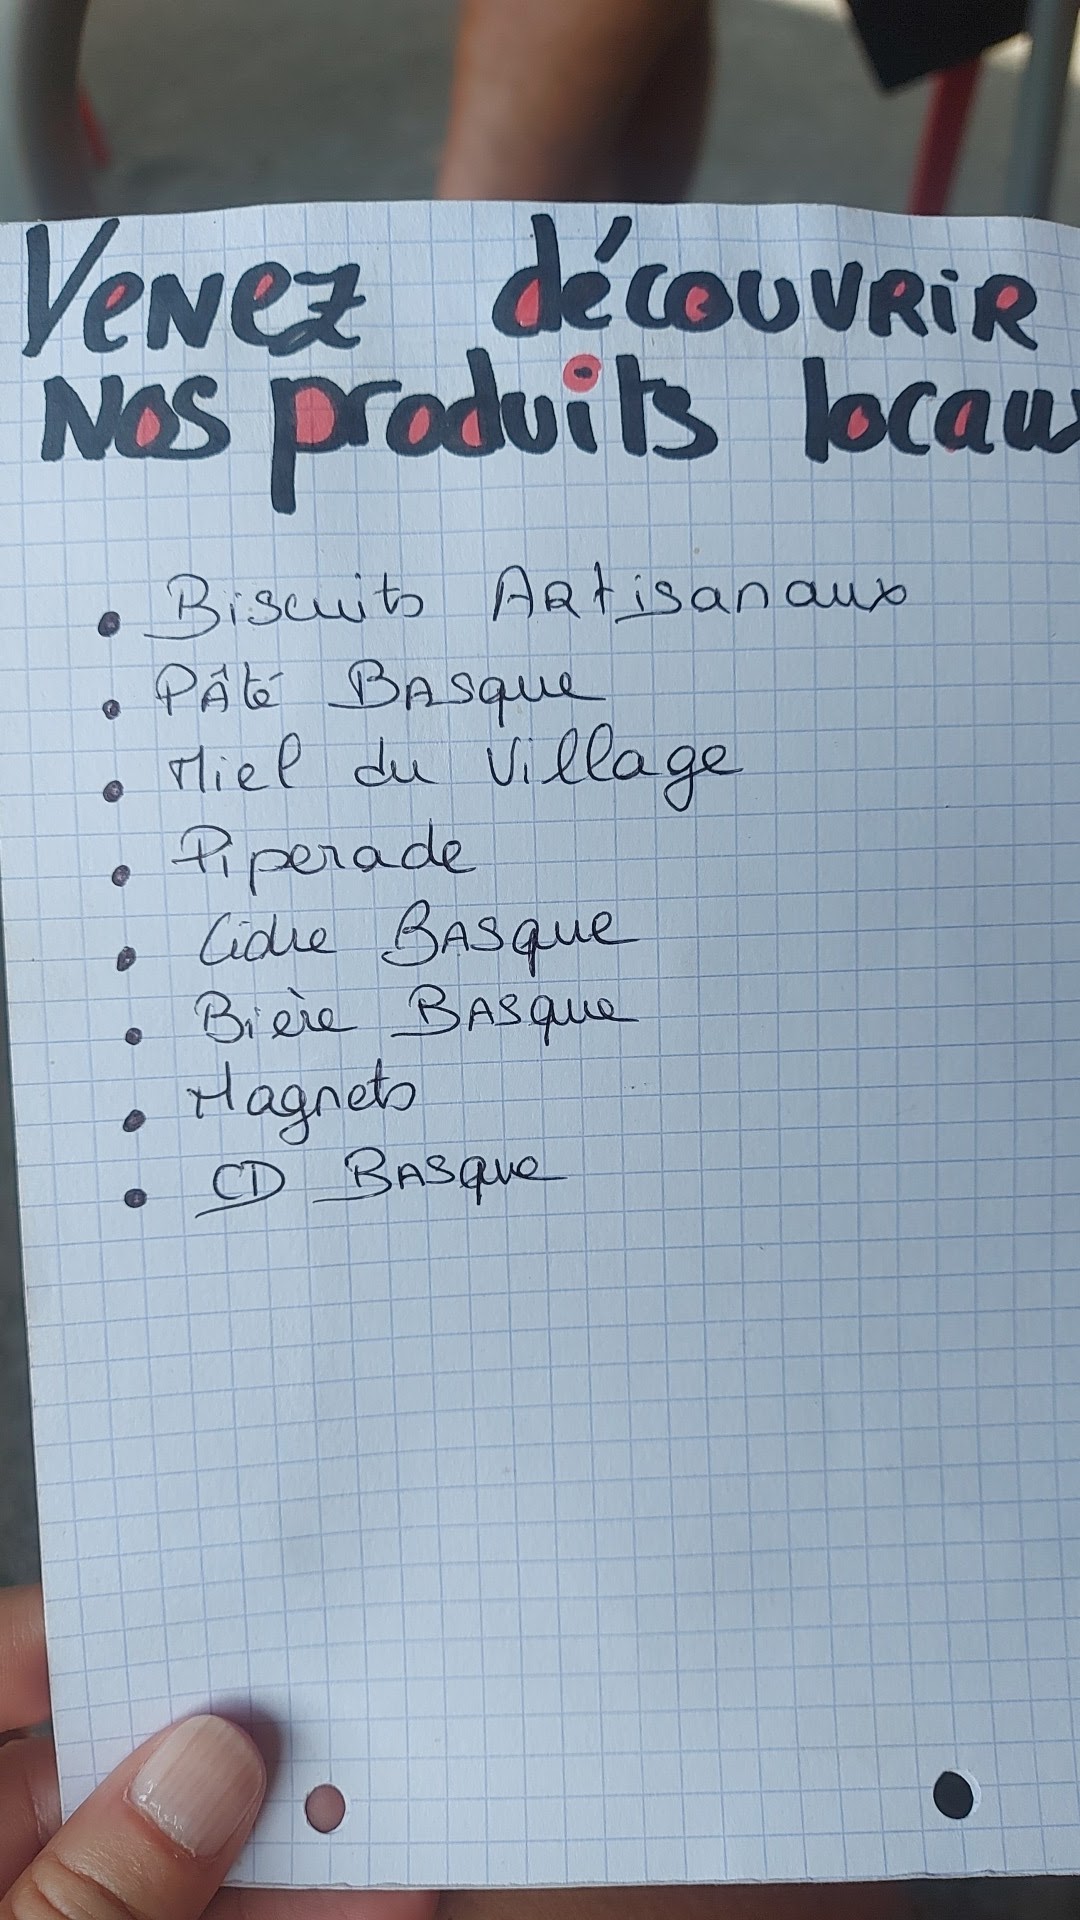 Venez découvrir
Nos produits locaux
• Biscuits Artisanaux
• Pâté Basque
• Miel du Village
• Piperade
• Cidre Basque
• Bière Basque
• Magnets
• CD Basque